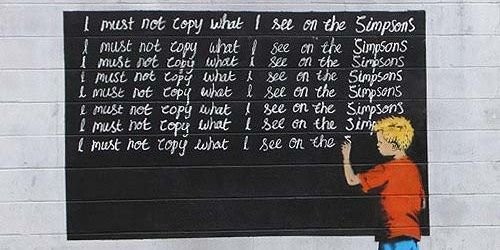 I must not copy what I see on the Simpsons
I must not copy what I see on the Simpsons
I must not copy what I see on the Simpsons
I must not copy what I see on the Simpsons
I must not copy what I see on the Simpsons
I must not copy what I see on the Simpsons
I must not copy what I see on the Simp
I must not copy what I see on the